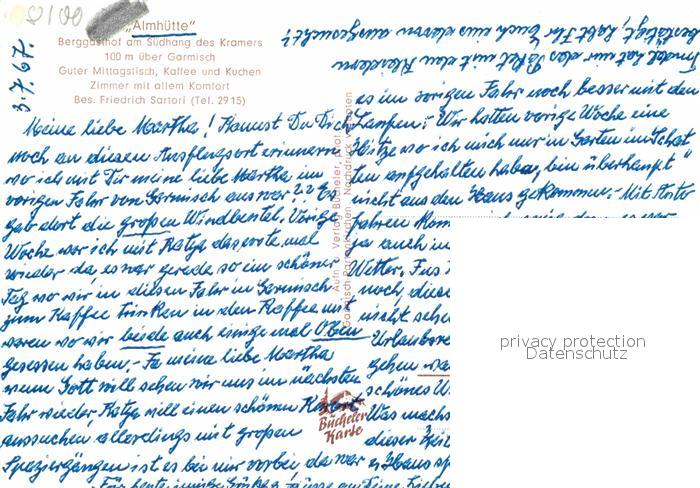 "Almhütte"
Berggasthof am Südhang des Kramers
100 m über Garmisch
Guter Mittagstisch, Kaffee und Kuchen
Zimmer mit allem Komfort
Bes. Friedrich Sartori (Tel. 2915)
3.7.67.
Meine liebe Martha! Kannst Du Dich
noch an diesen Ausflugsort erinnern
wo ich mit Dir meine liebe Martha im
vorigen Jahr von Garmisch aus war?? Es
gab dort die großen Windbeutel. Vorige
Woche war ich mit Katja das erste mal
wieder da, es war gerade so ein schöner
Tag wo wir in diesen Jahr in Garmisch
zum Kaffee trinken in den Kaffee mit
waren wo wir beide auch einige mal Oben
gesessen haben. - Ja meine liebe Martha
wenn Gott will sehen wir uns im nächsten
Jahr wieder, Katja will einen schönen
aussuchen allerdings mit großen
Spaziergängen ist es bei mir vorbei, da war
Für heute
es im vorigen Jahr noch besser mit den
Laufen. - Wir hatten vorige Woche eine
Hitze so ich mich nur im Garten im Schat
ten aufgehalten habe, bin überhaupt
nicht aus den Haus gekommen. - Mit Auto
fahren
ja auch in
Wetter.
noch, diese
nicht
gehen
schönes
Was
dieser
Haus
hat mir das Paket mit den Kleidern
bestätigt, habt Ihr Euch eins davon ausgesucht?
Bücheler
Karte
privacy protection
Datenschutz